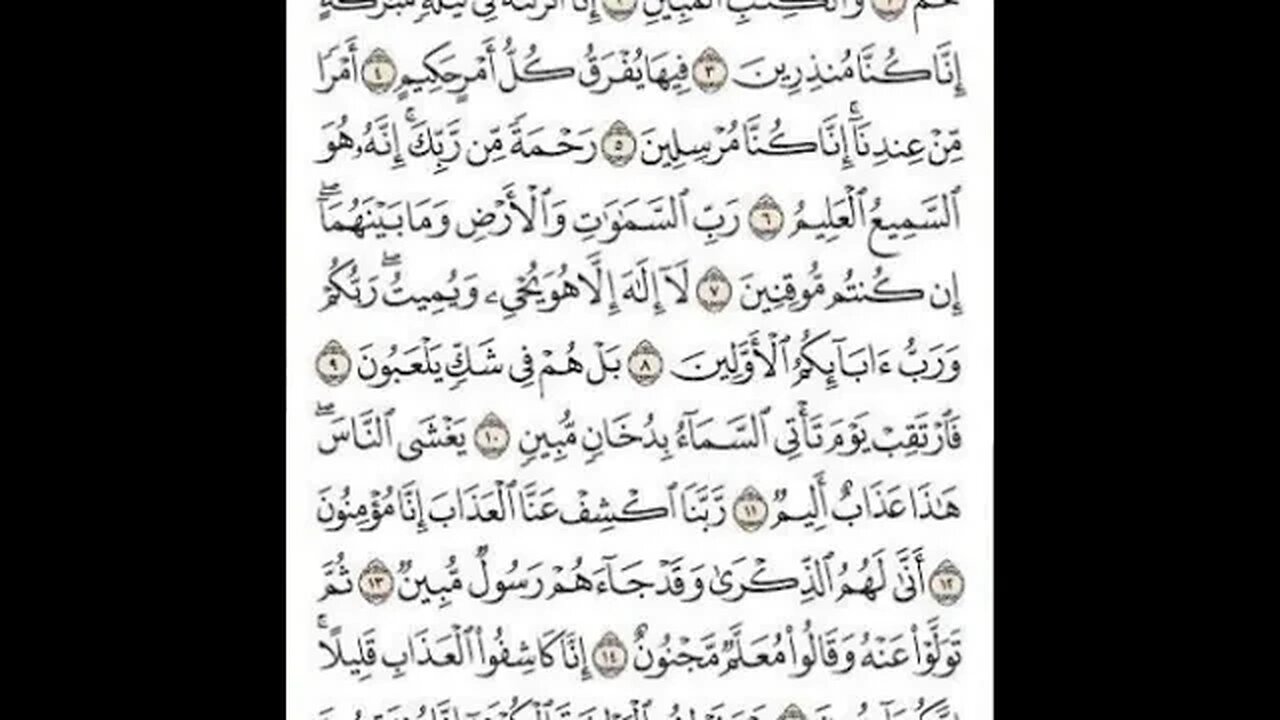 حمٓ ١ وَٱلۡكِتَٰبِ ٱلۡمُبِينِ ٢ إِنَّآ أَنزَلۡنَٰهُ فِي لَيۡلَةٖ مُّبَٰرَكَةٍۚ
إِنَّا كُنَّا مُنذِرِينَ ٣ فِيهَا يُفۡرَقُ كُلُّ أَمۡرٍ حَكِيمٍ ٤ أَمۡرٗا
مِّنۡ عِندِنَآۚ إِنَّا كُنَّا مُرۡسِلِينَ ٥ رَحۡمَةٗ مِّن رَّبِّكَۚ إِنَّهُۥ هُوَ
ٱلسَّمِيعُ ٱلۡعَلِيمُ ٦ رَبِّ ٱلسَّمَٰوَٰتِ وَٱلۡأَرۡضِ وَمَا بَيۡنَهُمَآۖ
إِن كُنتُم مُّوقِنِينَ ٧ لَآ إِلَٰهَ إِلَّا هُوَ يُحۡيِۦ وَيُمِيتُۖ رَبُّكُمۡ
وَرَبُّ ءَابَآئِكُمُ ٱلۡأَوَّلِينَ ٨ بَلۡ هُمۡ فِي شَكّٖ يَلۡعَبُونَ ٩
فَٱرۡتَقِبۡ يَوۡمَ تَأۡتِي ٱلسَّمَآءُ بِدُخَانٖ مُّبِينٖ ١٠ يَغۡشَى ٱلنَّاسَۖ
هَٰذَا عَذَابٌ أَلِيمٞ ١١ رَّبَّنَا ٱكۡشِفۡ عَنَّا ٱلۡعَذَابَ إِنَّا مُؤۡمِنُونَ
١٢ أَنَّىٰ لَهُمُ ٱلذِّكۡرَىٰ وَقَدۡ جَآءَهُمۡ رَسُولٞ مُّبِينٞ ١٣ ثُمَّ
تَوَلَّوۡاْ عَنۡهُ وَقَالُواْ مُعَلَّمٞ مَّجۡنُونٌ ١٤ إِنَّا كَاشِفُواْ ٱلۡعَذَابِ قَلِيلًاۚ